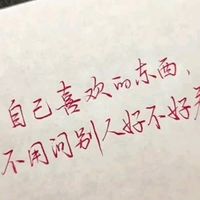 自己喜欢的东西，
不用问别人好不好